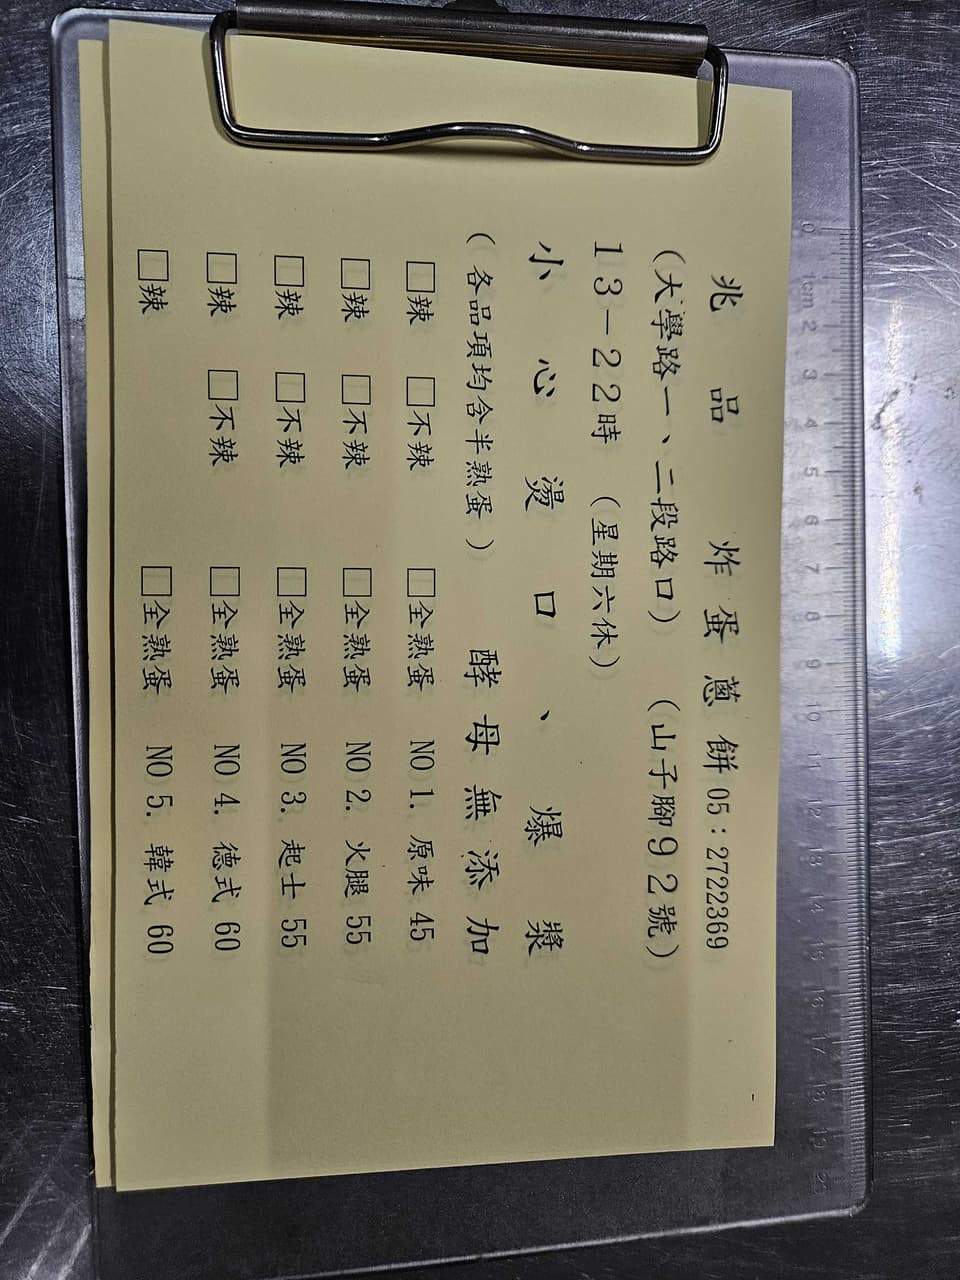 兆品 炸蛋蔥餅 05:2722369
(大學路一、二段路口) (山子腳92號)
13-22時 (星期六休)
小心燙口、爆漿
(各品項均含半熟蛋) 酵母無添加
□辣 □不辣 □全熟蛋 NO 1. 原味 45
□辣 □不辣 □全熟蛋 NO 2. 火腿 55
□辣 □不辣 □全熟蛋 NO 3. 起士 55
□辣 □不辣 □全熟蛋 NO 4. 德式 60
□辣 □全熟蛋 NO 5. 韓式 60
0 1cm 2 3 4 5 6 7 8 9 10 11 12 13 14 15 16 17 18 19 20